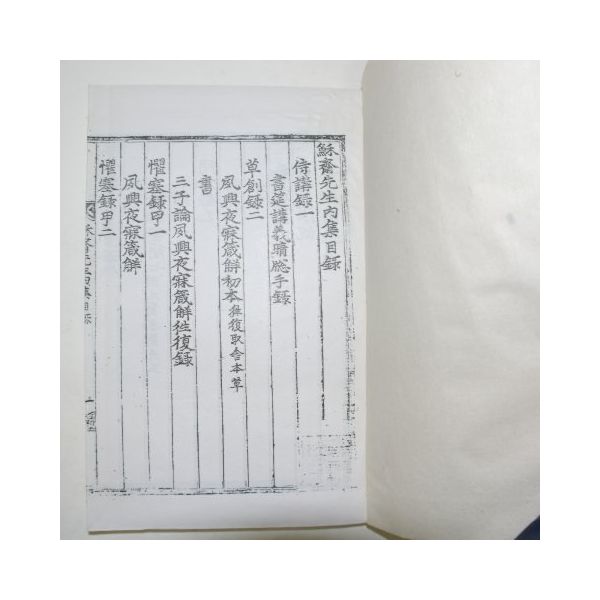 穌齋先生內集目錄
侍講錄一
書筵講義晴牕手錄
草創錄二
夙興夜寐箴解初本 往復取舍本草
書
三子論夙興夜寐箴解往復錄
懼塞錄甲一
夙興夜寐箴解
懼塞錄甲二